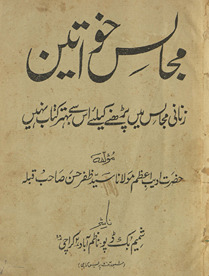 مجالس خواتین
زنانی مجالس میں پڑھنے کیلئے اس سے بہتر کتاب نہیں
مؤلفہ
حضرت ادیب اعظم مولانا سید ظفر حسن صاحب قبلہ
ناشر
شمیم بک ڈپو ناظم آباد ۲ کراچی